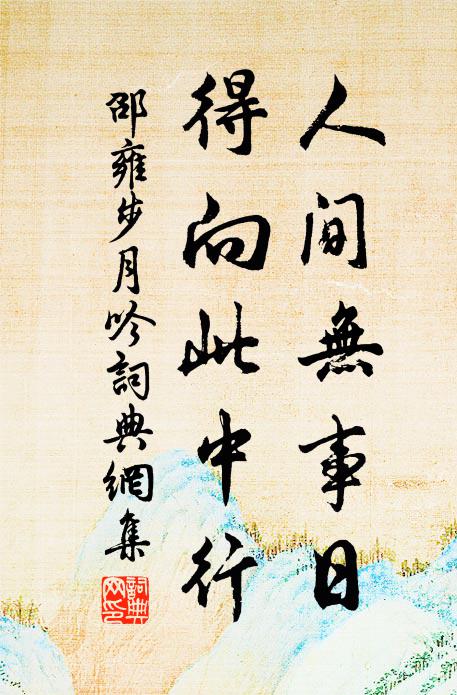 人間無事日
得向此中行
邵雍步月吟詞典網集
詞典網印